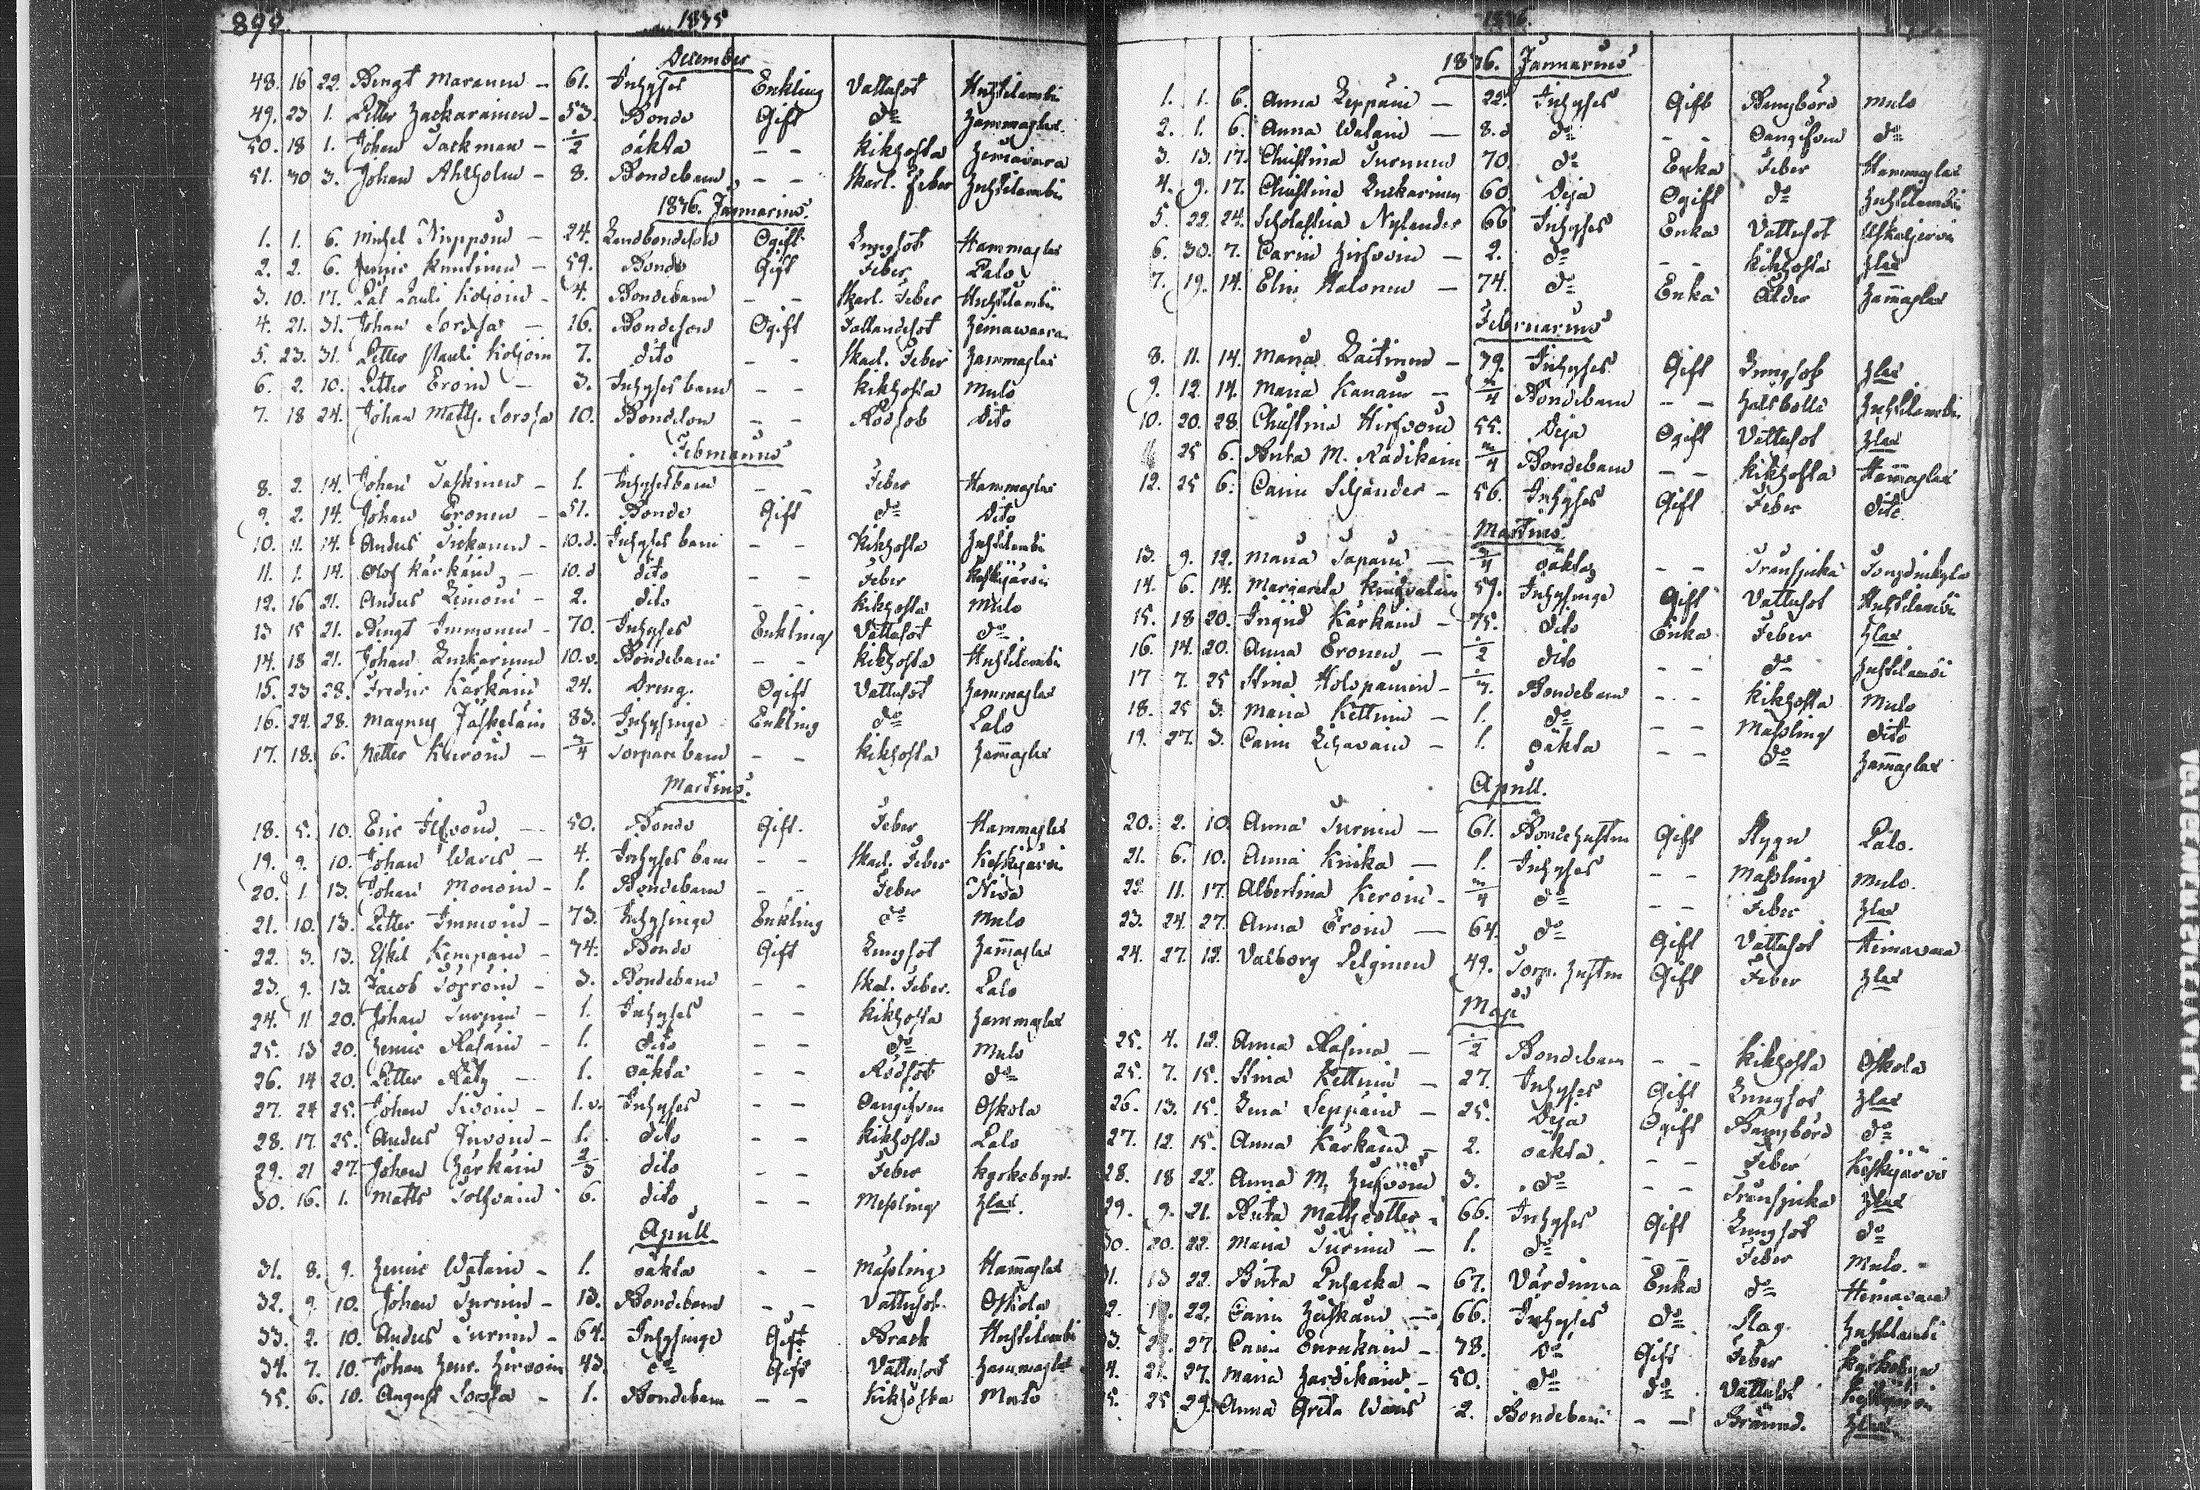 899. 1835
December
48. 16 22. Bengt Maranen - 61. Inhyses Enkling Vattusot Huhtilambi
49. 23 1. Petter Zackarainen - 53. Bonde Gift do Hammaslax
50. 18 1. Johan Tackman - 1/2 oäkta - - Kikhosta Heinavara
51. 30 3. Johan Ahlholm - 8. Bondebarn - - Skarl. Feber Huhtilambi
1836. Januarius.
1. 1. 6. Michel - 24. Ogift Lungsot Hammaslax
2. 2. 6. - 59. Bonde Gift Feber Palo
3. 10. 17. Pål Pauli Koljoin - 4. Bondebarn - - Skarl. Feber Huhtilambi
4. 21. 31. Johan Sorsa - 16. Bondeson Ogift Fallandesot Heinawaara
5. 23. 31. Petter Pauli Koljoin 7. dito - - Skarl. Feber Hammaslax
6. 2. 10. Petter Eroin - 3. Inhyses barn - - Kikhosta Mulo
7. 18 24. Johan Math. Sorsa 10. Bondeson - - Rödsot Dito
Februarius
8. 2. 14. Johan Taskinen - 1. Inhyses barn - - Feber Hammaslax
9. 2. 14. Johan Eronen - 51. Bonde Gift do Dito
10. 11. 14. Anders Tiikainen - 10.d. Inhyses barn - - Kikhosta Huhtilambi
11. 1. 14. Olof Kärkäin - 10.d dito - - Feber Koskijärvi
12. 16 21. Anders Limoin - 2. dito - - Kikhosta Mulo
13 15 21. Bengt Immonen - 70. Inhyses Enkling Vattusot do
14. 18 21. Johan Zuckarinen 10.v. Bondebarn - - Kikhosta Huhtilambi
15. 23 28. Fredric Kärkäin 24. Dreng. Ogift Vattusot Hammaslax
16. 24. 28. Magnus Jäskeläin 83. Inhysinge Enkling do Palo
17. 18. 6. Petter Kuroin - 3/4 Torpare barn - - Kikhosta Hammaslax
Martius.
18. 5. 10. Eric Ilvoin - 50. Bonde Gift. Feber Hammaslax
19. 9. 10. Johan Waris - 4. Inhyses barn - - Skarl. Feber Koskijärvi
20. 1. 13. Johan Monoin - 1. Bondebarn - - Feber Niva
21. 10. 13. Petter Immoin - 73. Inhysinge Enkling do Mulo
22. 3. 13. Eskil Kempain - 74. Bonde Gift Lungsot Hammaslax
23. 9. 13. Jacob - 3. Bondebarn - - Skarl. Feber. Palo
24. 11 20. Johan Turuin - 1. Inhyses - - Kikhosta Hammaslax
25. 13 20. Henric Räsäin - 1. dito - - do Mulo
26. 14 20. Petter Räty - 1. oäkta - - Rödsot do
27. 24 25. Johan Sivoin - 1.v. Inhyses - - Oangifven Onkola
28. 17. 25. Anders Juvoin - 1. dito - - Kikhosta Palo
29. 21 27. Johan Kärkäin 2/3 dito - - Feber Kyrkobyn.
30. 16. 1. Matts Tolvain 6. dito - - Messling Hlax.
Aprill
31. 8. 9. Henric Watain - 1. oäkta - - Mässling Hammaslax
32. 9. 10. Johan Turuin - 13. Bondebarn - - Vattusot Onkola
33. 2. 10. Anders Turuin - 64. Inhysinge Gift Brack Huhtilambi
34. 7. 10. Johan Henr. Hirvoin 43. do Gift Vattusot Hammaslax
35. 6. 10. August Sorsa - 1. Bondebarn - - Kikhosta Mulo
1836.
1836. Januarius
1. 1. 6. Anna Leppäin - 22. Inhyses Gift Barnsbörd Mulo
2. 1. 6. Anna Watain - 8.d do - - Oangifven do
3. 13. 17. Christina Turunen 70. do Enka Feber Hammaslax
4. 9. 17. Christina Zuckarinen 60. Deja Ogift do Huhtilambi
5. 22. 24. Scholastica Nylander 66 Inhyses Enka Vattusot
6. 30. 7. Carin Hirvoin - 2. do - - Kikhosta Hlax
7. 19. 14. Elin Halonen - 74. do Enka Ålder Hammaslax
Februarius
8. 11. 14. Maria Laitinen - 39. Inhyses Gift Lungsot Hlax
9. 12. 14. Maria Kanain - 3/4 Bondebarn - - Halsböld Huhtilambi
10. 20. 28. Christina Hirvoin 55. Deja Ogift Vattusot Hlax
11. 25 6. Anna M. Radikain 3/4 Bondebarn - - Kikhosta Hammaslax
12. 25 6. Carin Siljander - 56. Inhyses Gift Feber Dito
Martius.
13. 9. 12. Maria Tapain - 3/4 oäkta - -
14. 6. 14. Margareta 59. Inhysinge Gift Vattusot Huhtilambi
15. 18 20. Ingrid Kärkäin - 75. Dito Enka Feber Hlax
16. 14. 20. Anna Eronen - 1/2 dito - - do Huhtilambi
17 7. 25 Stina Holopainin - Bondebarn - - Kikhosta Mulo
18. 25 3. Maria Kettuin - 1. do - - Mässling Dito
19. 27. 3. Carin - 1. oäkta - - do Hammaslax
Aprill.
20. 2. 10. Anna Turuin - 61. Bondehustru Gift Stygn Palo.
21. 6. 10. Anna Kuika - 1. Inhyses - - Mässling Mulo.
22. 11. 17. Albertina Keroin - 3/4 do - - Feber Hlax
23. 24. 27. Anna Eroin - 64. do Gift Vattusot Heinavara
24. 27. 12. Valborg Pelginen 49. Torp. hustru Gift Feber Hlax
Maji
25. 4. 12. Anna Rasina - 1/2 Bondebarn - - Kikhosta Onkola
25. 7. 15. Stina Kettuin - 27. Inhyses Gift Lungsot Hlax
26. 13. 15. Lena Leppäin - 25. Deja Ogift Barnsbörd do
27. 12. 15. Anna Kärkäin - 2. oäkta - - Feber Koskijärvi
28. 18 22. Anna M. Hirvoin 3. do - - Hlax
29. 9. 21. Anna Mathsdotter - 66. Inhyses Gift Lungsot do
30. 20. 22. Maria Turuin - 1. do - - Feber Mulo.
31. 13 22. Anna Puhacka - 67. Vårdinna Enka do Heinavara
22. Carin - 66. Inhyses do Slag. Huhtilambi
27. 27 Carin Eurukain - 78. Do Gift Feber Kyrkobyn
21. 27. Maria Hardikain - 50. do do Vattusot Koskijärvi
25 29. Anna Greta Waris 2. Bondebarn - - Brännd. Hlax